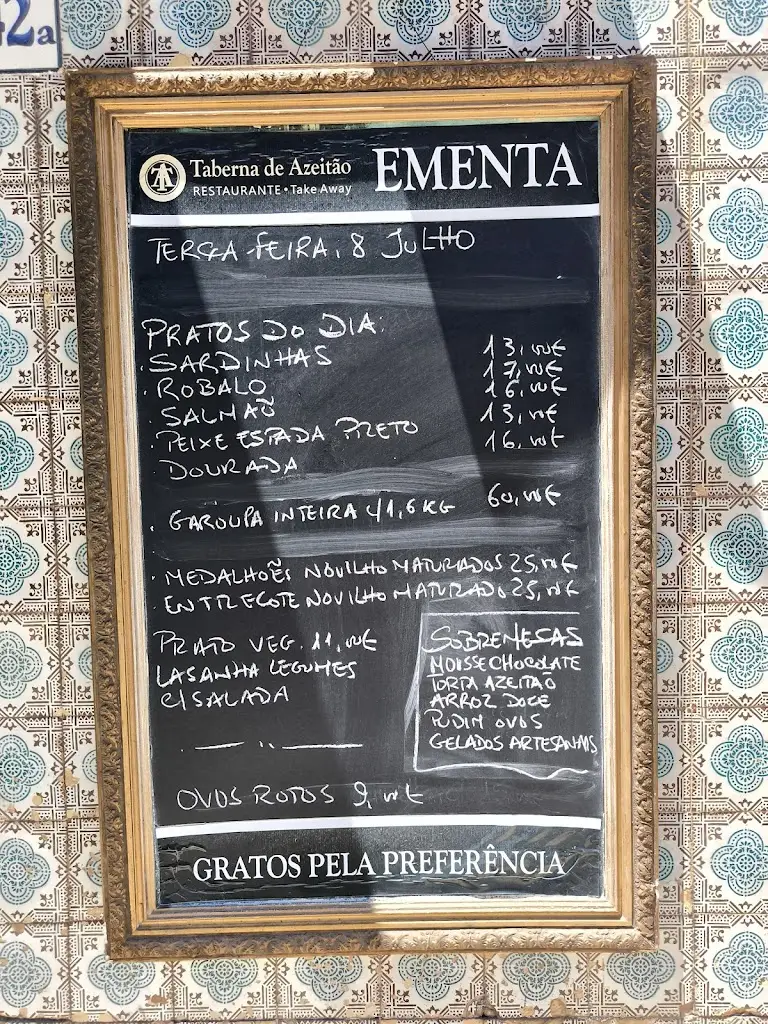 42a
Taberna de Azeitão
RESTAURANTE • Take Away
EMENTA
TERÇA-FEIRA, 8 JULHO
PRATOS DO DIA:
. SARDINHAS 13,00€
. ROBALO 17,00€
. SALMÃO 16,00€
. PEIXE ESPADA PRETO 13,00€
. DOURADA 16,00€
. GAROUPA INTEIRA C/1,6 KG 60,00€
. MEDALHÕES NOVILHO MATURADOS 25,00€
. ENTRECOTE NOVILHO MATURADO 25,00€
PRATO VEG. 11,00€
LASANHA LEGUMES
C/SALADA
SOBREMESAS
MOUSSE CHOCOLATE
TORTA AZEITÃO
ARROZ DOCE
PUDIM OVOS
GELADOS ARTESANAIS
OVOS ROTOS 9,00€
GRATOS PELA PREFERÊNCIA